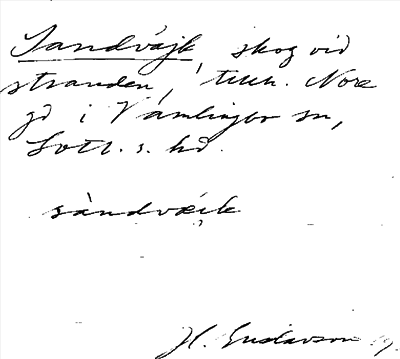 Sandvájk, skog vid
stranden, tillh. Nore
gd i Vamlingbo sn,
Gotl. s. hd.
sàndvæi̯k
H. Gustavson